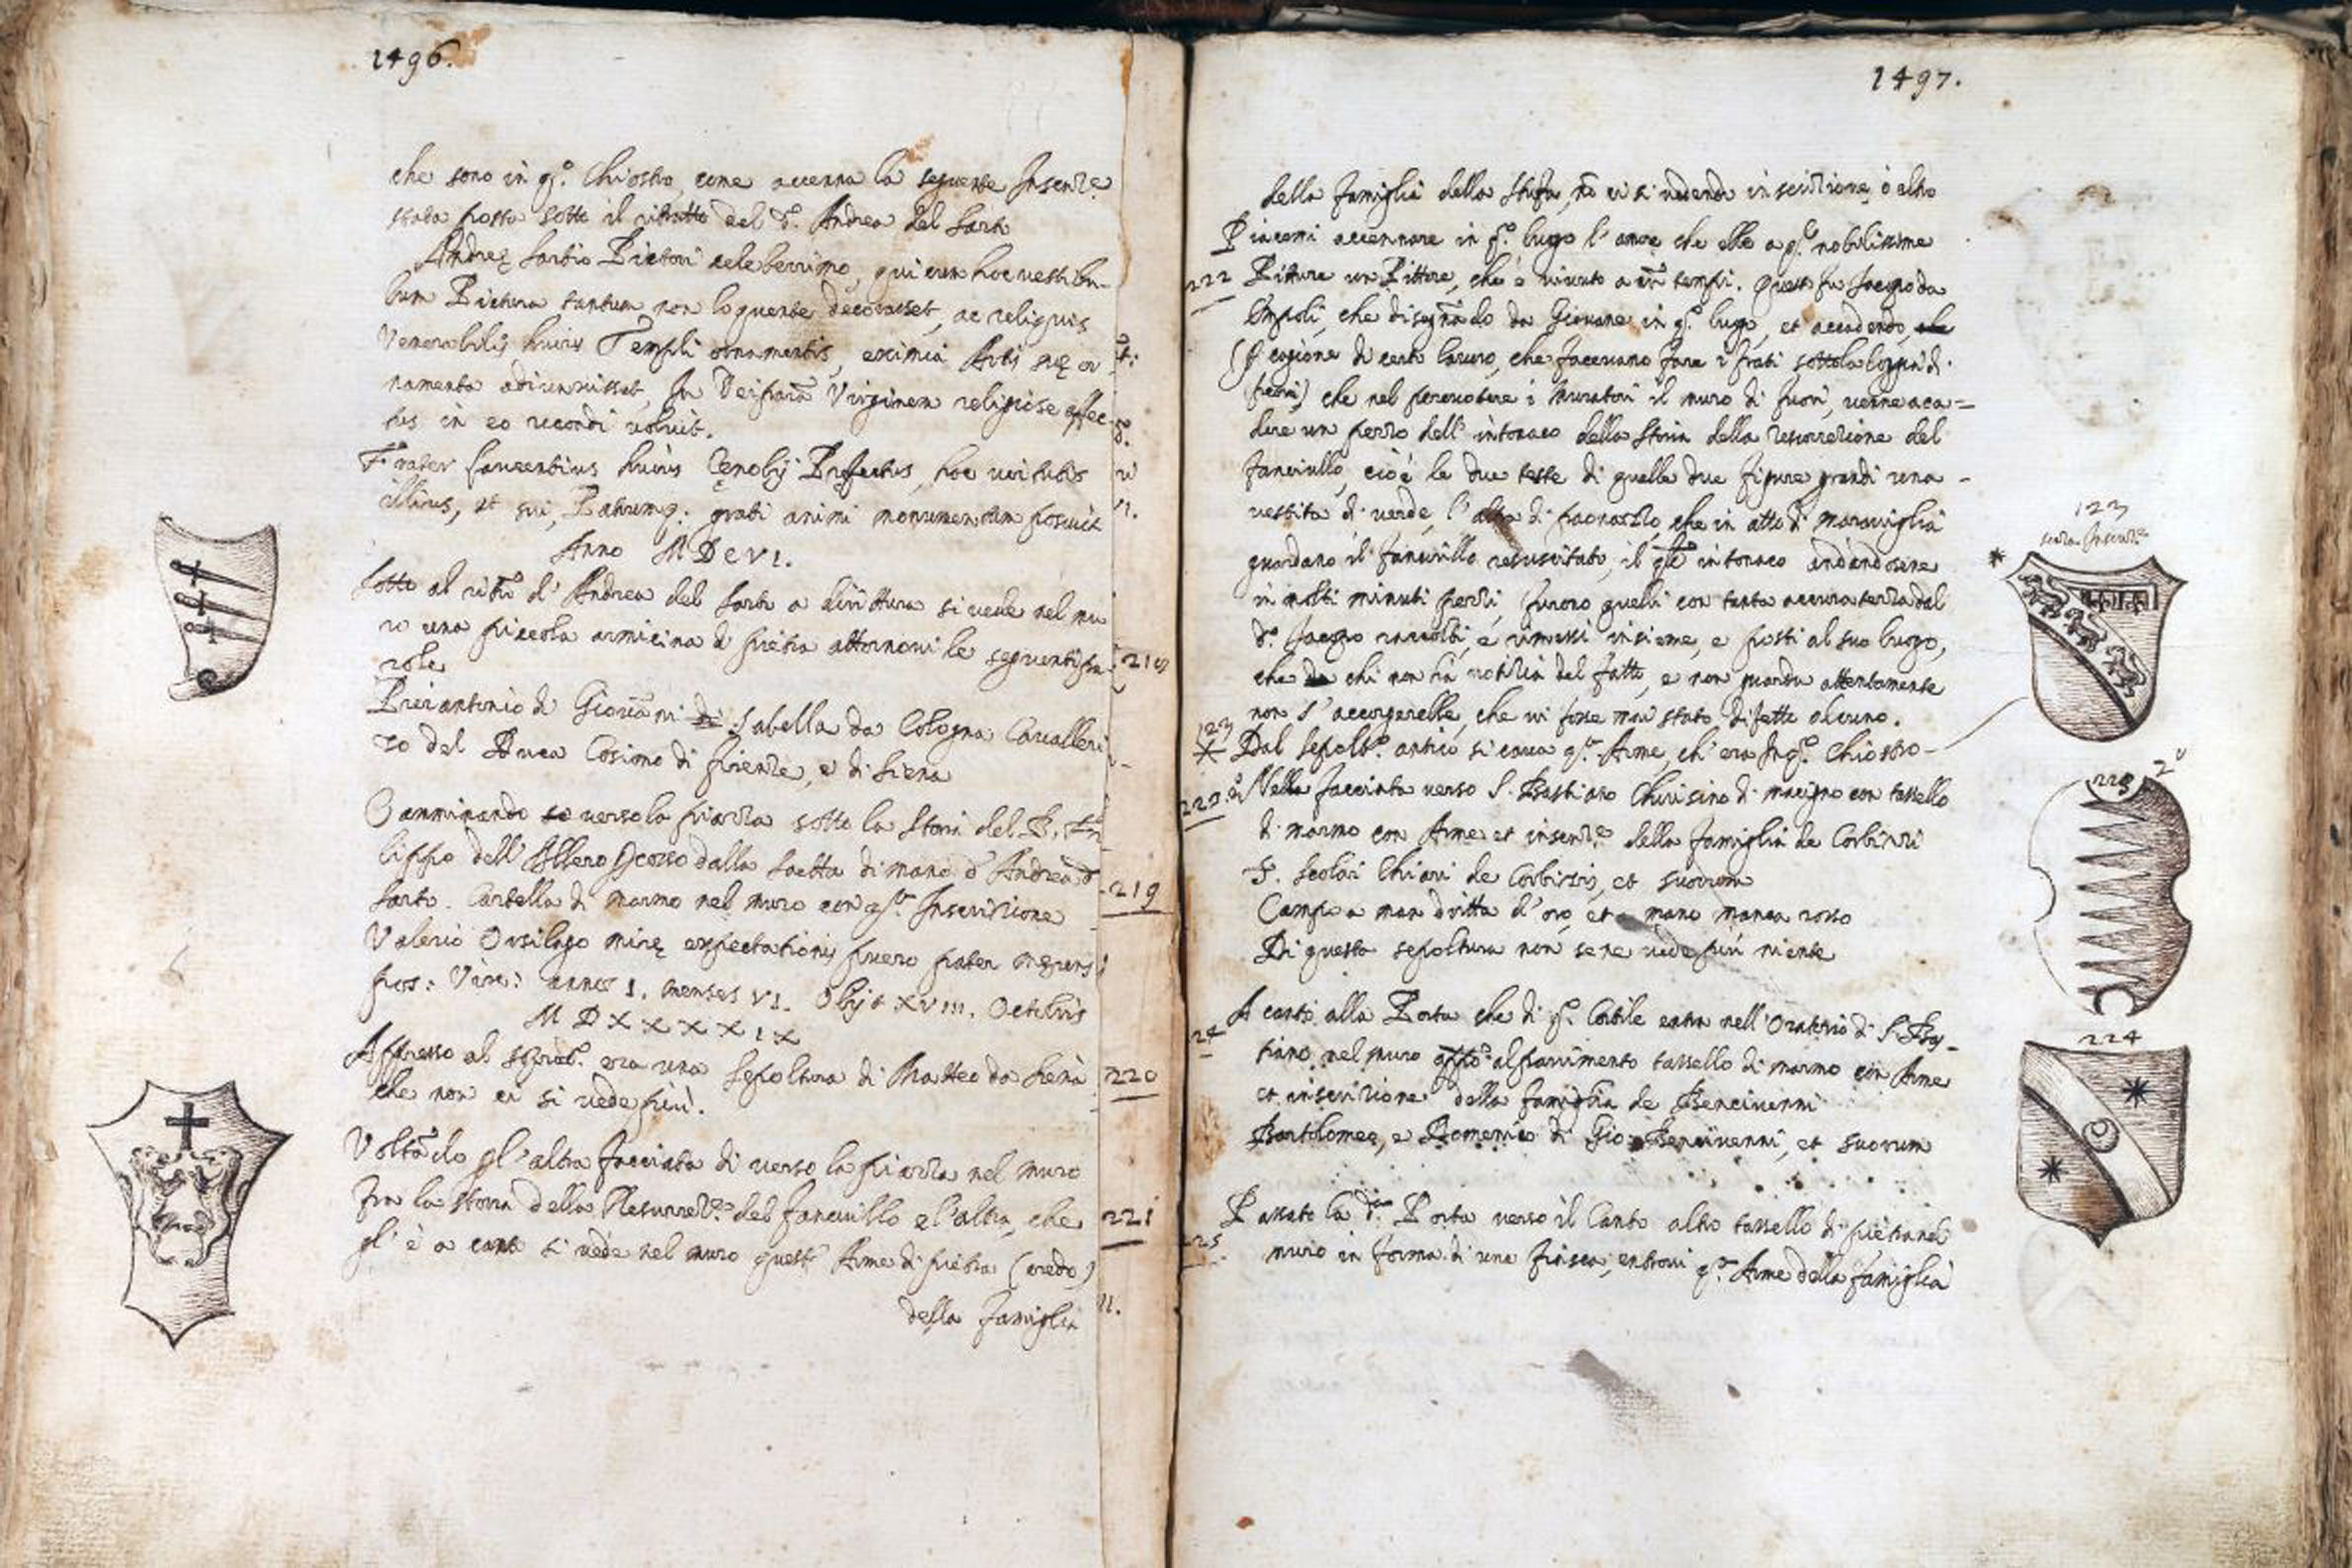 1496.
che sono in q.º Chiostro, come accenna la seguente Inscriz.e
stata posta sotto il ritratto del d.º Andrea del Sarto
Andreę Sartio Pictori celeberrimo, qui cum hoc vestibu-
lum Pictura tantum non loquente decorasset, ac reliquis
Venerabilis huius Templi ornamentis, eximia Artis suę or
namenta adiunxisset, In Deiparā Virginem religiose affec
tus in eo recondi voluit.
Frater Laurentius huius Cęnobij Pręfectus, hoc virtutis
illius, et sui, Patrumq: grati animi monumentum posuit
Anno MDCVI.
Sotto al ritto d'Andrea del Sarto a dirittura si vede nel mu
ro una piccola armicina di pietra attornovi le seguenti pa-
role
Pierantonio di Giovāni di Isabella da Cologna Cavalleri
zo del Duca Cosimo di Firenze, e di Siena
Camminando verso la piazza sotto la Storia del B. Fi
lippo dell'Albero scosso dalla saetta di mano d'Andrea d
Sarto. Cartella di marmo nel muro con q.ta Inscrizione
219
Valerio Orsilago mirę expectationis puero frater męrens
pos: Vix: annos I. menses VI. Obijt XVIII. Octobris
MDXXXXIX
Appresso al sopradº. era una sepoltura di Matteo da Siena
220
che non ci si vede più.
Voltādo p l'altra facciata di verso la piazza nel muro
fra la storia della Resurrez.e del fanciullo e l'altra, che
221
gl'è a canto si vede nel muro quest'Arme di pietra (credo)
della famiglia
1497.
della famiglia della Stufa, nō ci si vedendo inscrizione, ò altro
Piacemi accennare in q.º luogo l'amore che ebbe a q.e nobilissime
222
Pitture un Pittore, che è vivuto a ñri tempi. Questo fu Jacopo da
Empoli, che disegnādo da Giovane in q.º luogo, et accadendo, che
(p cagione di certo lavoro, che facevano fare i frati sotto la loggia di
fuori) che nel percuotere i Muratori il muro di fuori, venne a ca=
dere un pezzo dell'intonaco della storia della resurrezione del
fanciullo, cioè le due teste di quelle due figure grandi una
vestita di verde, l'altra di paonazzo, che in atto di maraviglia
guardano il fanciullo resuscitato, il qle intonaco andandosene
in molti minuti pezzi, furono quelli con tanta accuratezza dal
d.º Jacopo raccolti, e rimessi insieme, e posti al suo luogo,
che da chi non hà notizia del fatto, e non guarda attentamente
non s'accorgerebbe, che vi fosse mai stato difetto alcuno.
123
Dal Sepolt.º antico si cava q.ta Arme, ch'era in q.º Chiostro
Nella facciata verso S. Bastiano Chiusino di macigno con tassello
di marmo con Arme et inscriz.e della famiglia de Corbizzi
S. Scolai Chiari de Corbizis, et suorum
Campo a man dritta d'oro, et a mano manca rosso
Di questa sepoltura non se ne vede più niente
A canto alla Porta che di q.º Cortile entra nell'Oratorio di S. Bas-
tiano nel muro appº al pavimento tassello di marmo con Arme
et inscrizione della famiglia de Bencivenni
Bartolomeo, e Domenico di Gio: Bencivenni, et suorum
Passato la d.ª Porta verso il Canto altro tassello di pietra nel
muro in forma di una fiasca, entrovi q.ta Arme della famiglia
123
senza Inscriz.e
223
2º
224